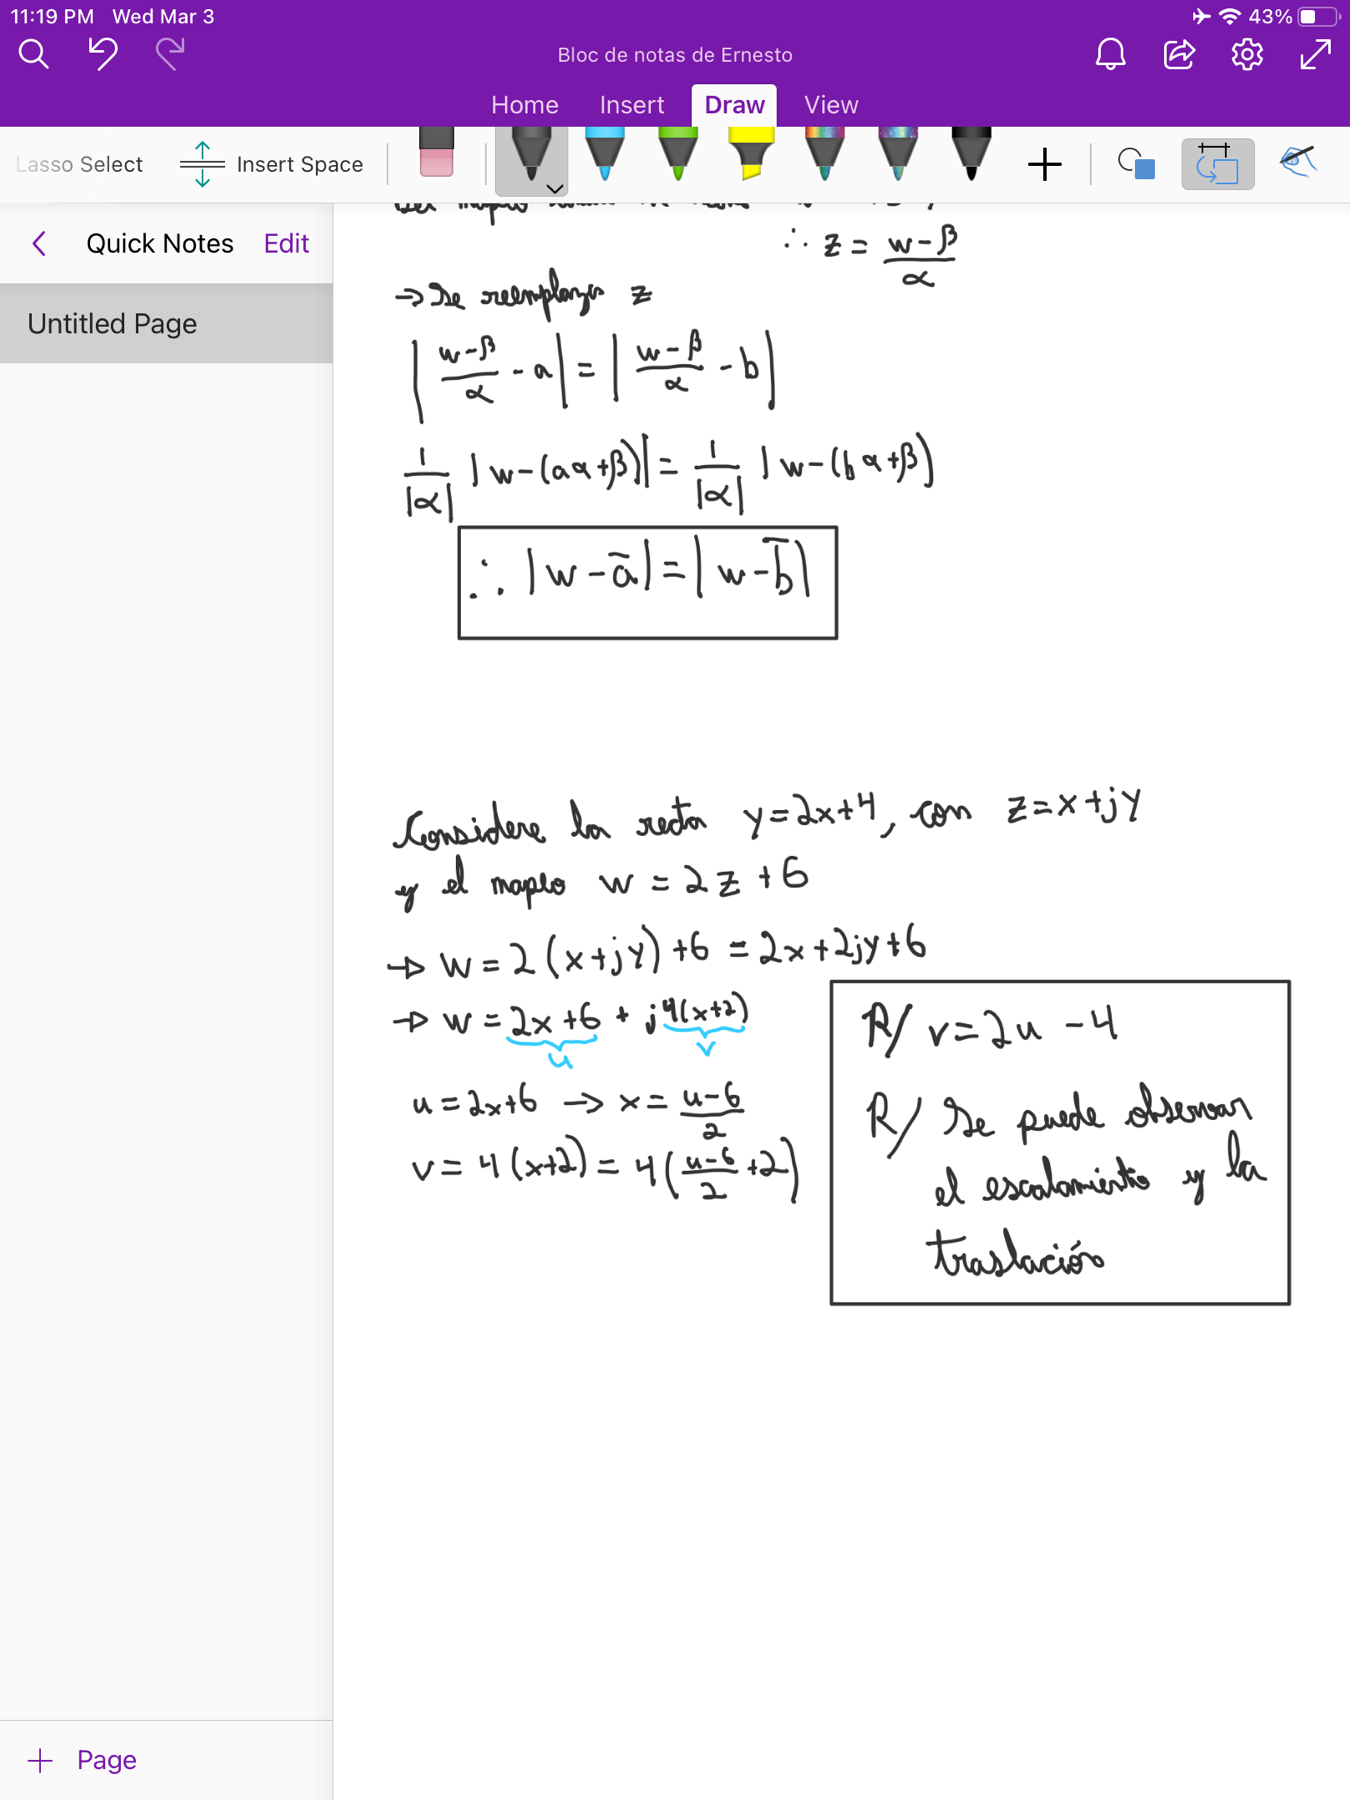 11:19 PM Wed Mar 3
43%
Bloc de notas de Ernesto
Home Insert Draw View
Lasso Select Insert Space
Quick Notes Edit
Untitled Page
∴ z = (w-β)/α
→ Se reemplaza z
|(w-β)/α - a| = |(w-β)/α - b|
1/|α| |w-(aα+β)| = 1/|α| |w-(bα+β)
∴ |w-ā| = |w-b̄|
Considere la recta y=2x+4, con z=x+jy
y el mapeo w = 2z+6
→ w = 2(x+jy)+6 = 2x+2jy+6
→ w = 2x+6 + j4(x+2)
u v
u = 2x+6 → x = (u-6)/2
v = 4(x+2) = 4((u-6)/2 +2)
R/ v=2u-4
R/ Se puede observar
el escalamiento y la
traslación
+ Page